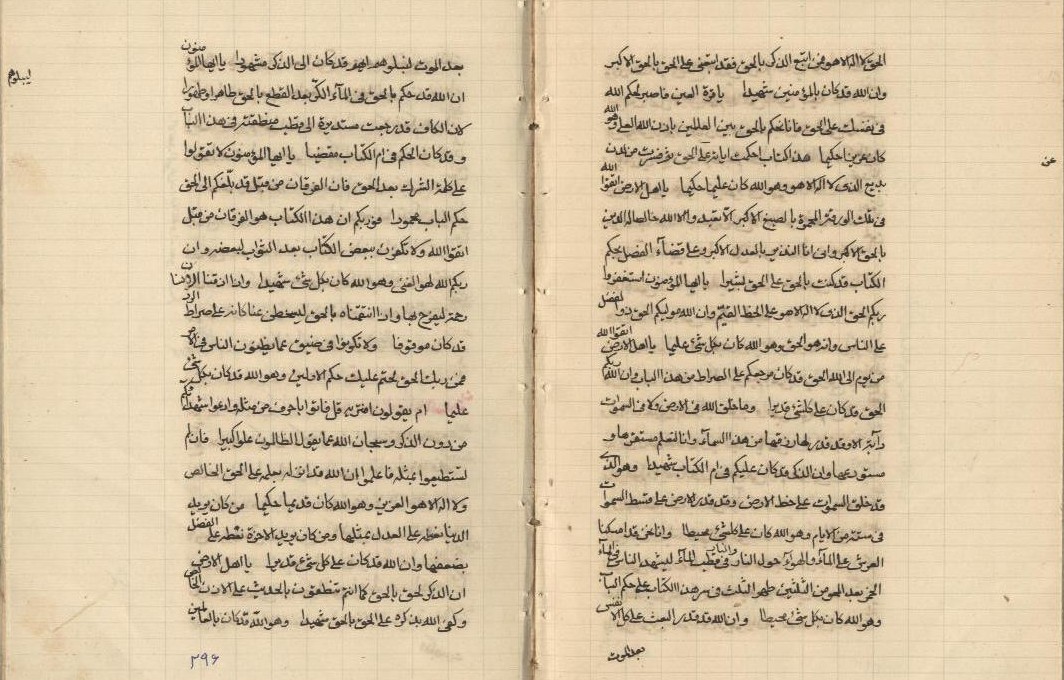 الحق لا اله الا هو فمن اتبع الذكر بالحق فقد اتبعنى على الحق بالحق الاكبر
وان الله قد كان بالمؤمنين شهيدا يا قرة العين فاصبر لحكم الله
فى نفسك على الحق فانا نحكم بالحق بين العالمين باذن الله العلى وهو الله
كان عزيزا حكيما هذا كتاب احكمت اياته على الحق ثم فصلت من لدن
عن
بديع الذى لا اله الا هو وهو الله كان عليما حكيما يا اهل الارض اتقوا الله
فى تلك الورقة المحمرة بالصبغ الاكبر الا تعبدوا الا الله خالصا له الدين
بالحق الاكبر وانى انا النذير بالعدل الاكبر وعلى قضاء الفصل بحكم
الكتاب قد كنت بالحق على الحق بشيرا يا ايها المؤمنون استغفروا
ربكم الحق الذى لا اله الا هو على الخط القيم وان الله موليكم الحق ذو الفضل
على الناس وانه هو الحق وهو الله كان بكل شئ عليما يا اهل الارض اتقوا الله
من يوم الى الله الحق قد كان مرجعكم على الصراط من هذا الباب وان الله ربكم
الحق قد كان على كل شئ قديرا وما خلق الله فى الارض ولا فى السموات
دابة الا وقد قدر لها رزقها من هذا السماء وانا لنعلم مستقرها و
مستودعها وان الذكر قد كان عليكم فى ام الكتاب شهيدا وهو الذى
قد خلق السموات على خط الارض وقد قدر الارض على قسط السموات
فى ستة من الايام وهو الله كان على كل شئ محيطا وانا نحن قد امسكنا
العرش على الماء والهواء حول النار والتراب فى قطب الماء ليشهد الناس فى الماء
وهو الله كان بكل شئ محيطا وان الله قد قدر البعث على كل الانفس
بعد الموت
بعد الموت ليبلوهم ايهم قد كان الى الذكر مشهودا يا ايها المؤمنون
ليبلوهم
ان الله قد حكم بالحق فى الماء الكر بعد القطع بالحق طاهرا وطهورا
لان الكاف قد رجعت مستديرة الى قطب منطقته فى هذا الباب
وقد كان الحكم فى ام الكتاب مقضيا يا ايها المؤمنون لا تقولوا
على كلمة الشرك بعد الحق فان الفرقان من قبل قد بلغكم الى الحق
حكم الباب محمودا فوربكم ان هذا الكتاب هو الفرقان من قبل
اتقوا الله ولا تكفرن ببعض الكتاب بعد الثواب لبعضه وان
ربكم الله لهو الغنى وهو الله كان بكل شئ شهيدا وان اذقنا الانسان
رحمة ليفرح بها وان انتقمناه بالحق ليسخطى عنا كانه على صراط الرد
قد كان موقوفا ولا تكونوا فى ضيق عما يظنون الناس فى الارض
فمن ربك الحق لحتم عليك حكم الاولين وهو الله قد كان بكل شئ
عليما ام يقولون افتريه قل فاتوا باحرف من مثله وادعوا شهداءكم
من دون الذكر وسبحان الله عما يقول الظالمون علوا كبيرا فان لم
تستطيعوا بمثله فاعلموا ان الله قد انزله بعلمه على الحق الخالص
ولا اله الا هو العزيز وهو الله كان قديما حكيما من كان يريد
الدنيا نعطه على العدل بمثلها ومن كان يريد الاخرة نعطه على الفضل
بضعفها وان الله قد كان على كل شئ قديرا يا اهل الارض
ان الذكر لحق بالحق كما انتم تنطقون بالحديث على الاذن الخالص
وكفى الله بذكره على الحق بالحق شهيدا وهو الله قد كان بالعالمين
٢٩٦